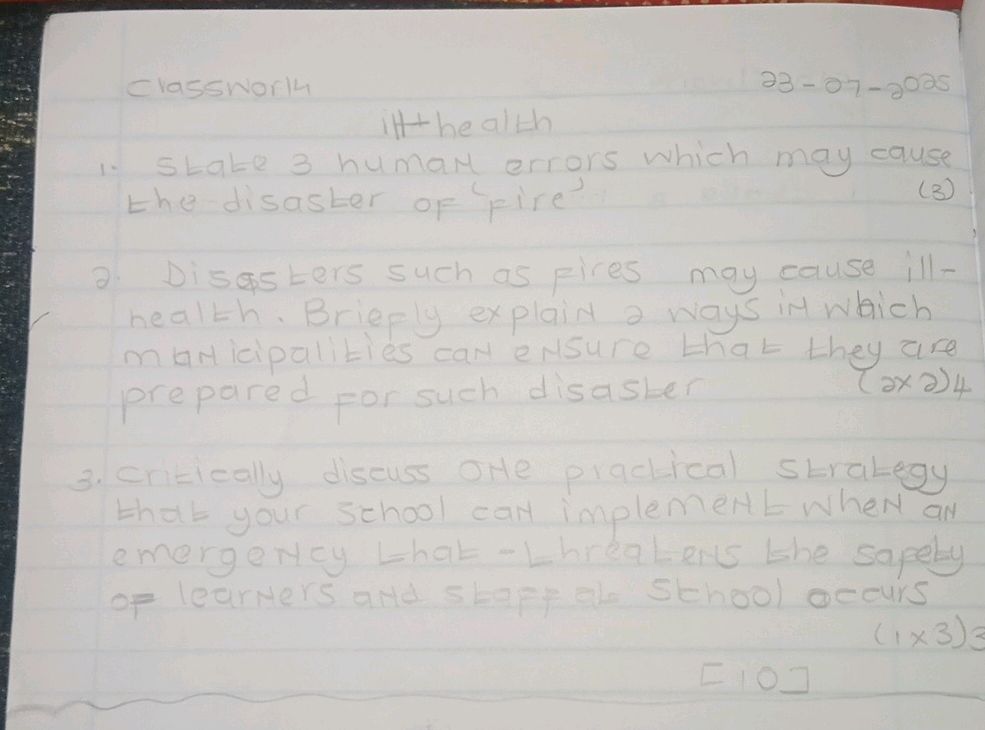 Classwork 23-07-2025
ill-health
1. State 3 human errors which may cause
the disaster of 'fire' (3)
2. Disasters such as fires may cause ill-
health. Briefly explain 2 ways in which
municipalities can ensure that they are
prepared for such disaster (2x2)4
3. Critically discuss one practical strategy
that your school can implement when an
emergency that - threatens the safety
of learners and staff at school occurs
(1x3)3
[10]